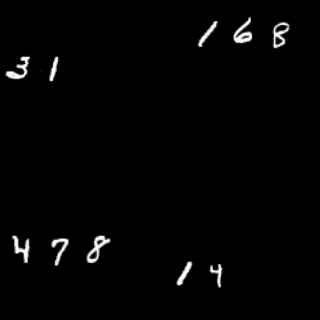 168
31
478
14